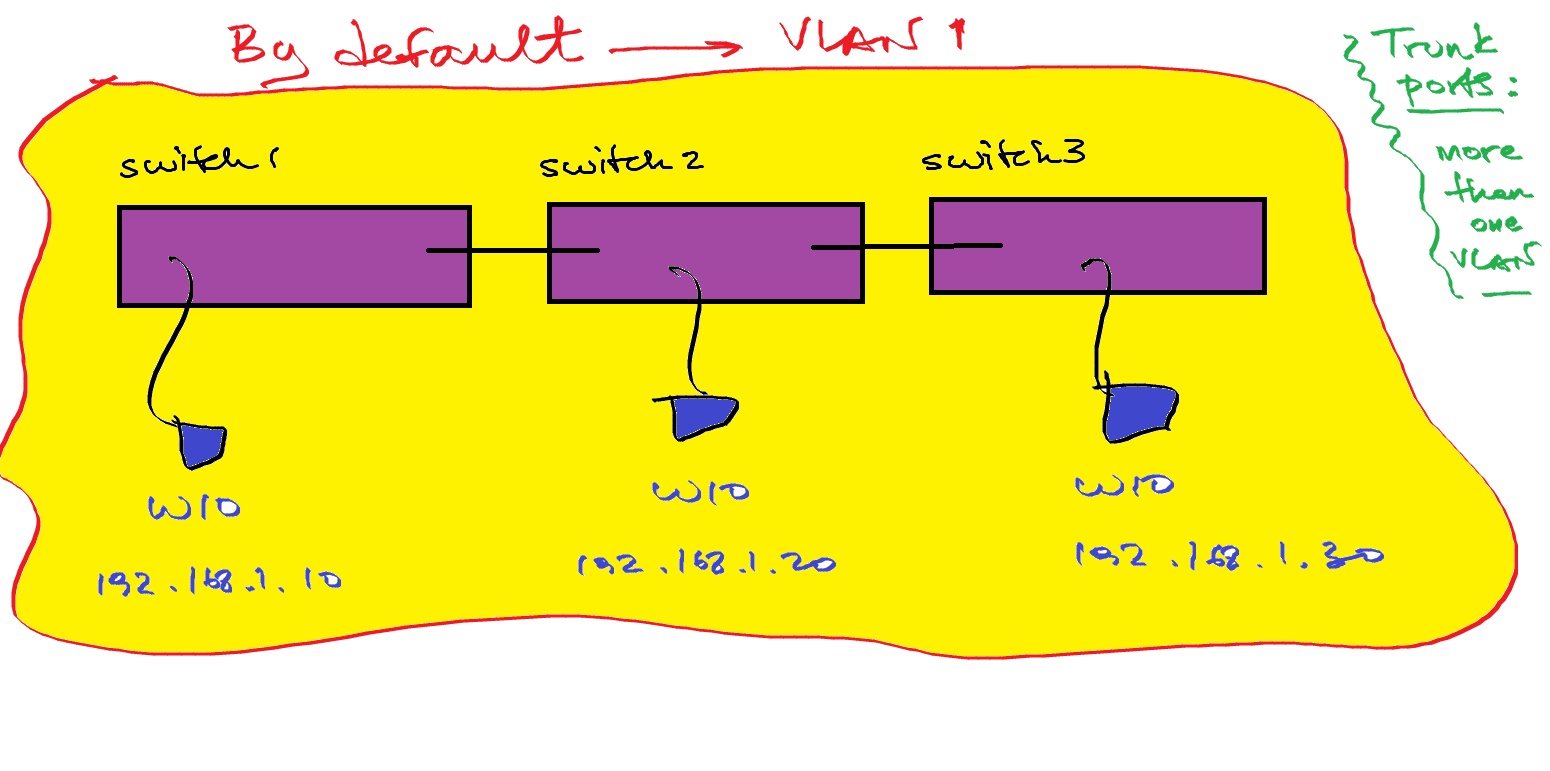 By default → VLAN 1
Trunk
ports:
more
than
one
VLAN
switch 1
switch 2
switch 3
W10
192.168.1.10
W10
192.168.1.20
W10
192.168.1.30